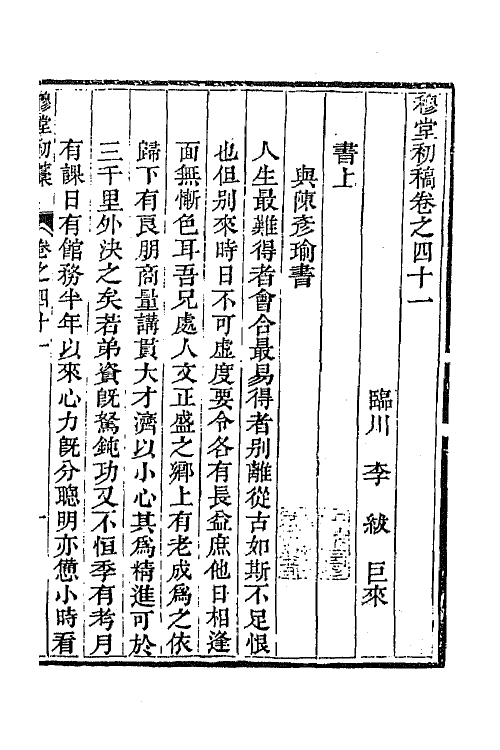 穆堂初稿卷之四十一
臨川 李 紱 巨來
書上
與陳彥瑜書
人生最難得者會合最易得者别離從古如斯不足恨
也但别來時日不可虛度要令各有長益庶他日相逢
面無慚色耳吾兄處人文正盛之鄉上有老成爲之依
歸下有良朋商量講貫大才濟以小心其爲精進可於
三千里外決之矣若弟資旣駑鈍功又不恒季有考月
有課日有館務半年以來心力旣分聰明亦憊小時看
穆堂初藁 卷之四十一 一